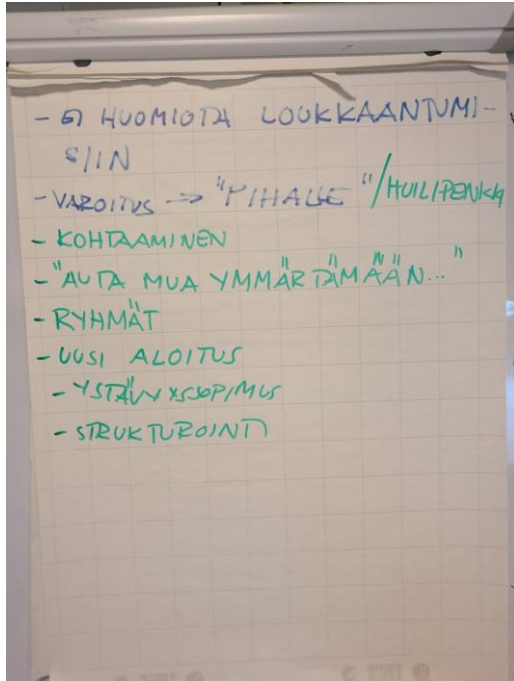 - EI HUOMIOTA LOUKKAANTUMI-
SIIN
- VAROITUS -> "PIHALLE"/HUILIPENKKI
- KOHTAAMINEN
- "AUTA MUA YMMÄRTÄMÄÄN..."
- RYHMÄT
- UUSI ALOITUS
- YSTÄVYYSSOPIMUS
- STRUKTUROINTI